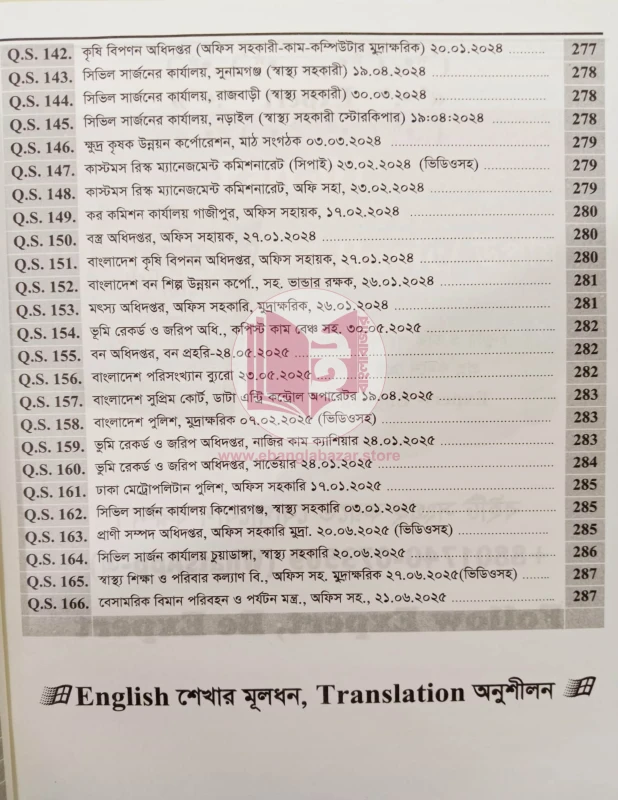 Q.S. 142. কৃষি বিপণন অধিদপ্তর (অফিস সহকারী-কাম-কম্পিউটার মুদ্রাক্ষরিক) ২০.০১.২০২৪ .......... 277
Q.S. 143. সিভিল সার্জনের কার্যালয়, সুনামগঞ্জ (স্বাস্থ্য সহকারী) ১৯.০৪.২০২৪ .......... 278
Q.S. 144. সিভিল সার্জনের কার্যালয়, রাজবাড়ী (স্বাস্থ্য সহকারী) ৩০.০৩.২০২৪ .......... 278
Q.S. 145. সিভিল সার্জনের কার্যালয়, নড়াইল (স্বাস্থ্য সহকারী স্টোরকিপার) ১৯:০৪:২০২৪ .......... 278
Q.S. 146. ক্ষুদ্র কৃষক উন্নয়ন কর্পোরেশন, মাঠ সংগঠক ০৩.০৩.২০২৪ .......... 279
Q.S. 147. কাস্টমস রিস্ক ম্যানেজমেন্ট কমিশনারেট (সিপাই) ২৩.০২.২০২৪ (ভিডিওসহ) .......... 279
Q.S. 148. কাস্টমস রিস্ক ম্যানেজমেন্ট কমিশনারেট, অফি সহা, ২৩.০২.২০২৪ .......... 279
Q.S. 149. কর কমিশন কার্যালয় গাজীপুর, অফিস সহায়ক, ১৭.০২.২০২৪ .......... 280
Q.S. 150. বস্ত্র অধিদপ্তর, অফিস সহায়ক, ২৭.০১.২০২৪ .......... 280
Q.S. 151. বাংলাদেশ কৃষি বিপনন অধিদপ্তর, অফিস সহায়ক, ২৭.০১.২০২৪ .......... 280
Q.S. 152. বাংলাদেশ বন শিল্প উন্নয়ন কর্পো., সহ. ভান্ডার রক্ষক, ২৬.০১.২০২৪ .......... 281
Q.S. 153. মৎস্য অধিদপ্তর, অফিস সহকারি, মুদ্রাক্ষরিক, ২৬.০১.২০২৪ .......... 281
Q.S. 154. ভূমি রেকর্ড ও জরিপ অধি., কপিস্ট কাম বেঞ্চ সহ. ৩০.০৫.২০২৫ .......... 282
Q.S. 155. বন অধিদপ্তর, বন প্রহরি-২৪.০৫.২০২৫ .......... 282
Q.S. 156. বাংলাদেশ পরিসংখ্যান ব্যুরো ২৩.০৫.২০২৫ .......... 282
Q.S. 157. বাংলাদেশ সুপ্রিম কোর্ট, ডাটা এন্ট্রি কন্ট্রোল অপারেটর ১৯.০৪.২০২৫ .......... 283
Q.S. 158. বাংলাদেশ পুলিশ, মুদ্রাক্ষরিক ০৭.০২.২০২৫ (ভিডিওসহ) .......... 283
Q.S. 159. ভূমি রেকর্ড ও জরিপ অধিদপ্তর, নাজির কাম ক্যাশিয়ার ২৪.০১.২০২৫ .......... 283
www.ebanglabazar.store
Q.S. 160. ভূমি রেকর্ড ও জরিপ অধিদপ্তর, সার্ভেয়ার ২৪.০১.২০২৫ .......... 284
Q.S. 161. ঢাকা মেট্রোপলিটান পুলিশ, অফিস সহকারি ১৭.০১.২০২৫ .......... 285
Q.S. 162. সিভিল সার্জন কার্যালয় কিশোরগঞ্জ, স্বাস্থ্য সহকারি ০৩.০১.২০২৫ .......... 285
Q.S. 163. প্রাণী সম্পদ অধিদপ্তর, অফিস সহকারি মুদ্রা. ২০.০৬.২০২৫ (ভিডিওসহ) .......... 285
Q.S. 164. সিভিল সার্জন কার্যালয় চুয়াডাঙ্গা, স্বাস্থ্য সহকারি ২০.০৬.২০২৫ .......... 286
Q.S. 165. স্বাস্থ্য শিক্ষা ও পরিবার কল্যাণ বি., অফিস সহ. মুদ্রাক্ষরিক ২৭.০৬.২০২৫(ভিডিওসহ) .......... 287
Q.S. 166. বেসামরিক বিমান পরিবহন ও পর্যটন মন্ত্র., অফিস সহ., ২১.০৬.২০২৫ .......... 287
English শেখার মূলধন, Translation অনুশীলন